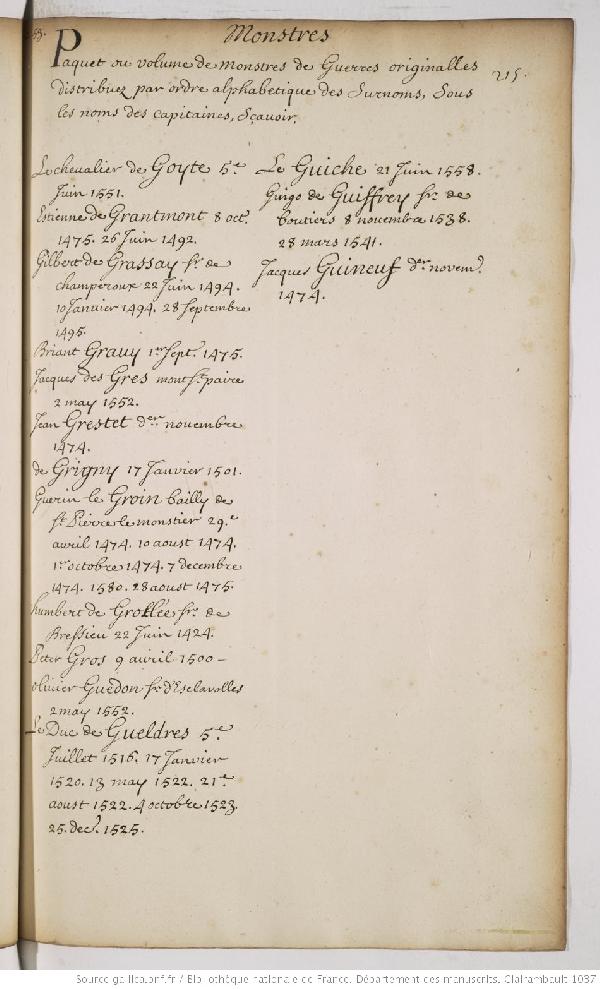 Monstres
Paquet ou volume de monstres de Guerres originalles
distribuez par ordre alphabetique des Surnoms, Sous
les noms des capitaines, Sçavoir.
215.
Le chevalier de Goyte 5.e
Juin 1551.
Estienne de Grantmont 8 oct.
1475. 26 Juin 1492.
Gilbert de Grassay sr. de
champeroux 22 Juin 1494.
10 Janvier 1494. 28 Septembre
1495.
Briant Grauy 1er Sept. 1475.
Jacques des Gres mont St. paire
2 may 1552.
Jean Grestet der novembre
1474.
de Grigny 17 Janvier 1501.
Guerin le Groin bailly de
St. Pierre le monstier 29.e
avril 1474. 10 aoust 1474.
1er octobre 1474. 7 decembre
1474. 1580. 28 aoust 1475.
humbert de Grollée sr. de
Bressieu 22 Juin 1424.
Peter Gros 9 avril 1500 -
olivier Guedon sr. d'Esclavolles
2 may 1552.
Le Duc de Gueldres 5.e
Juillet 1516. 17 Janvier
1520. 13 may 1522. 21.e
aoust 1522. 4 octobre 1523.
25. dec. 1525.
Le Guiche 21 Juin 1558.
Guigo de Guiffrey sr. de
boutiers 8 novembre 1538.
28 mars 1541.
Jacques Guineuf der. novem.
1474.
Source gallica.bnf.fr / Bibliothèque nationale de France. Département des manuscrits. Clairambault 1037